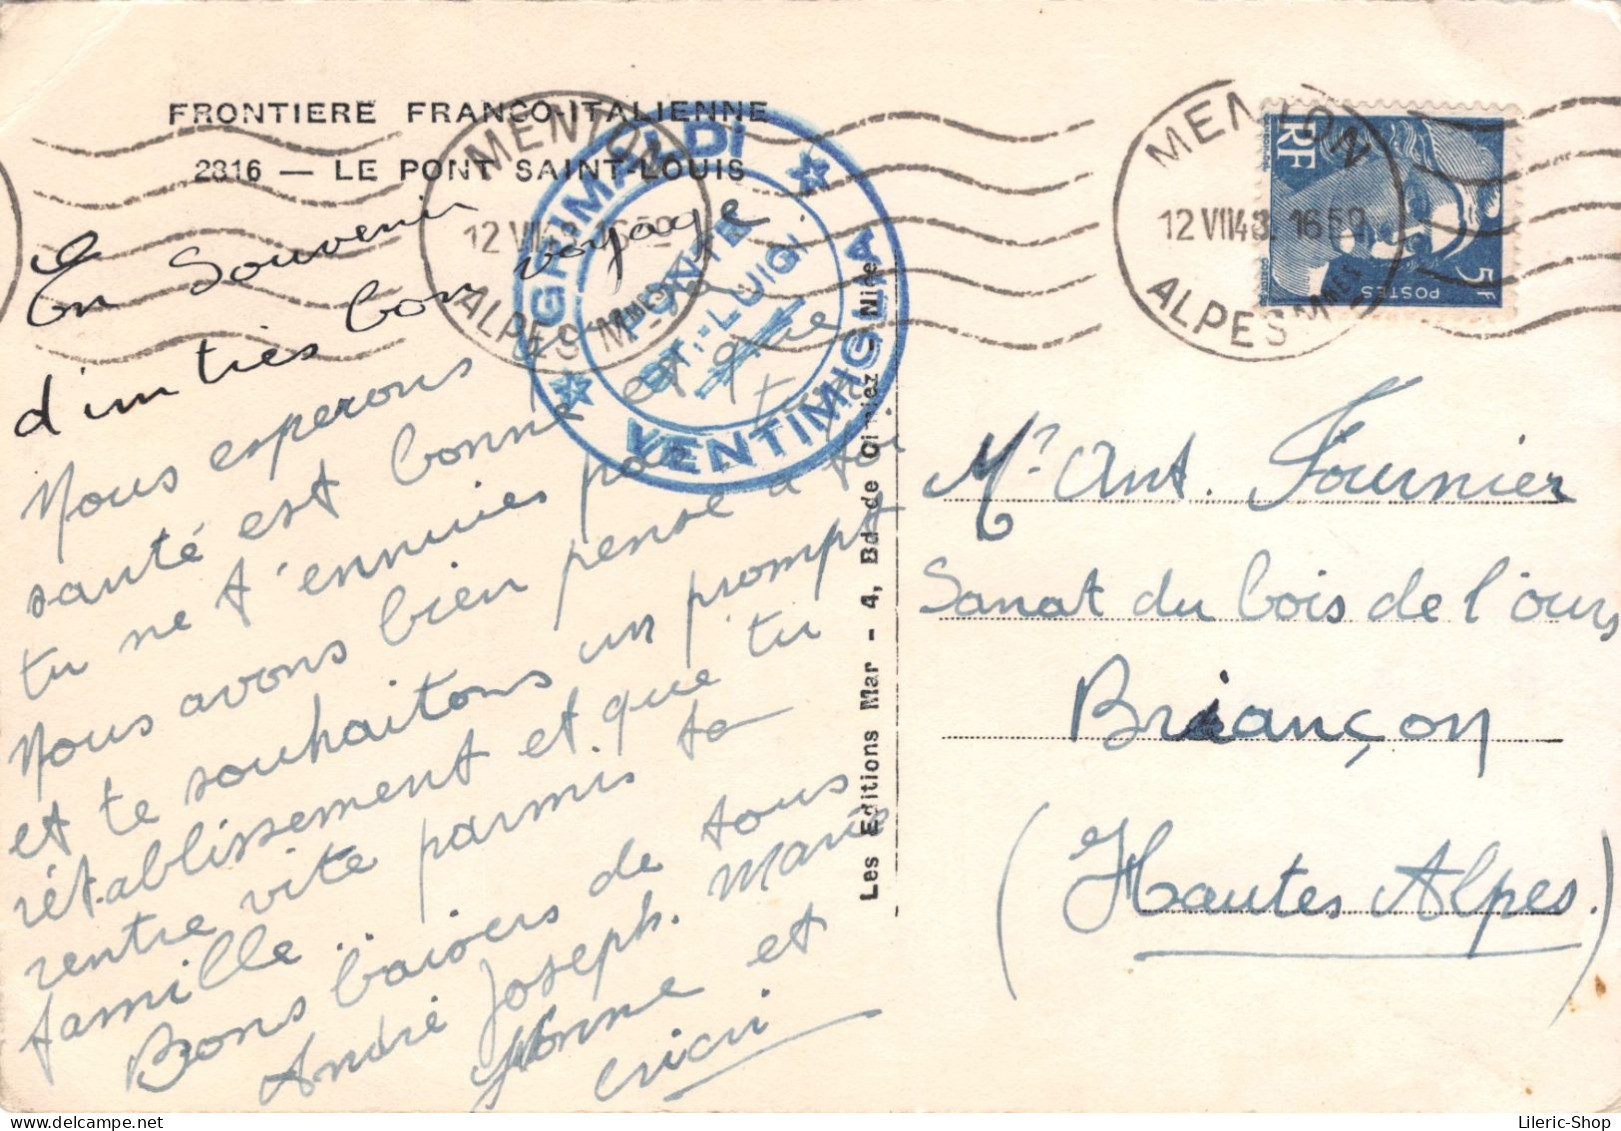 FRONTIERE FRANCO-ITALIENNE
2816 — LE PONT SAINT-LOUIS
MENTON
12 VII 1650
ALPES MMES
GRIMALDI
PONTE
ST.-LUIGI
VENTIMIGLIA
MENTON
12 VII 48. 1650
ALPES MMES
RF
5F
POSTES
En souvenir
d'un très bon voyage
Nous esperons que ta
santé est bonne et que
tu ne t'ennuies pas
Nous avons bien pensé à toi
et te souhaitons un prompt
rétablissement et que tu
rentre vite parmis ta
famille.
Bons baisers de tous
André Joseph. Marius
Yvonne et
Cricri
Les Editions Mar - 4, Bd de Cimiez - Nice
Mr Ant. Fournier
Sanat du bois de l'ours
Briançon
(Hautes Alpes.)
Lileric-Shop